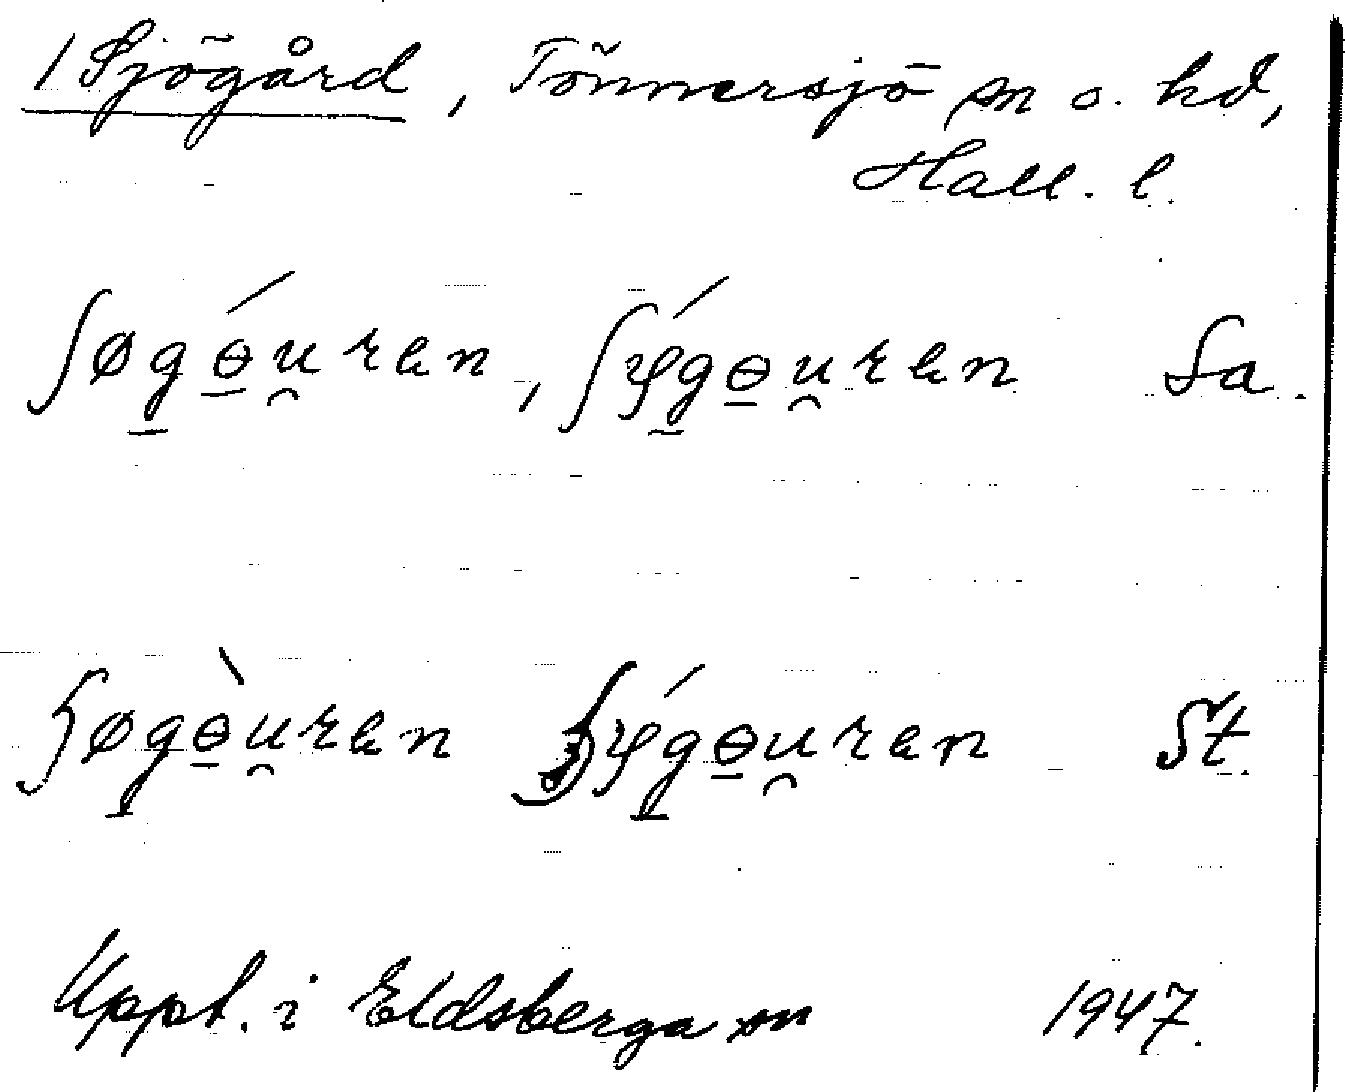 / Sjögård, Tönnersjö sn o. hd,
Hall. l.
ʃøgɵ́u̯ren, ʃýgɵu̯ren Sa.
ʃøgɵ̀u̯ren ʃýgɵu̯ren St.
Uppt. i Eldsberga sn 1947.